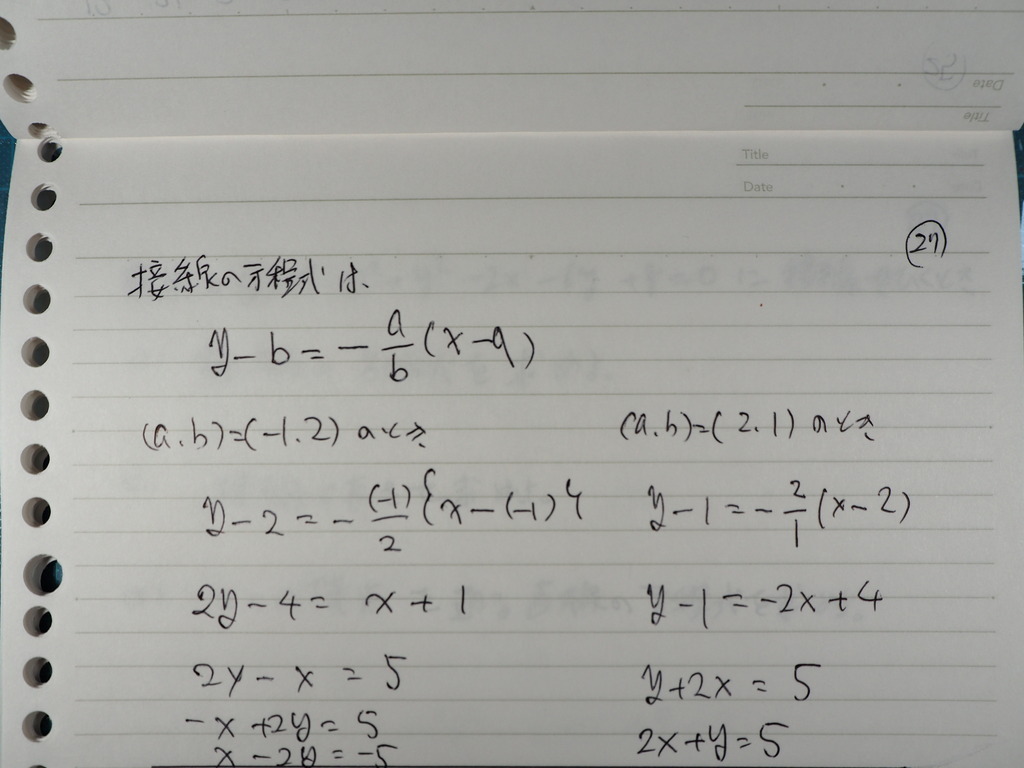 Date
Title
Title
Date
㉗
接線の方程式は、
y-b=-\frac{a}{b}(x-a)
(a.b)=(-1.2)のとき
y-2=-\frac{(-1)}{2}{x-(-1)}
2y-4=x+1
2y-x=5
-x+2y=5
x-2y=-5
(a.b)=(2.1)のとき
y-1=-\frac{2}{1}(x-2)
y-1=-2x+4
y+2x=5
2x+y=5